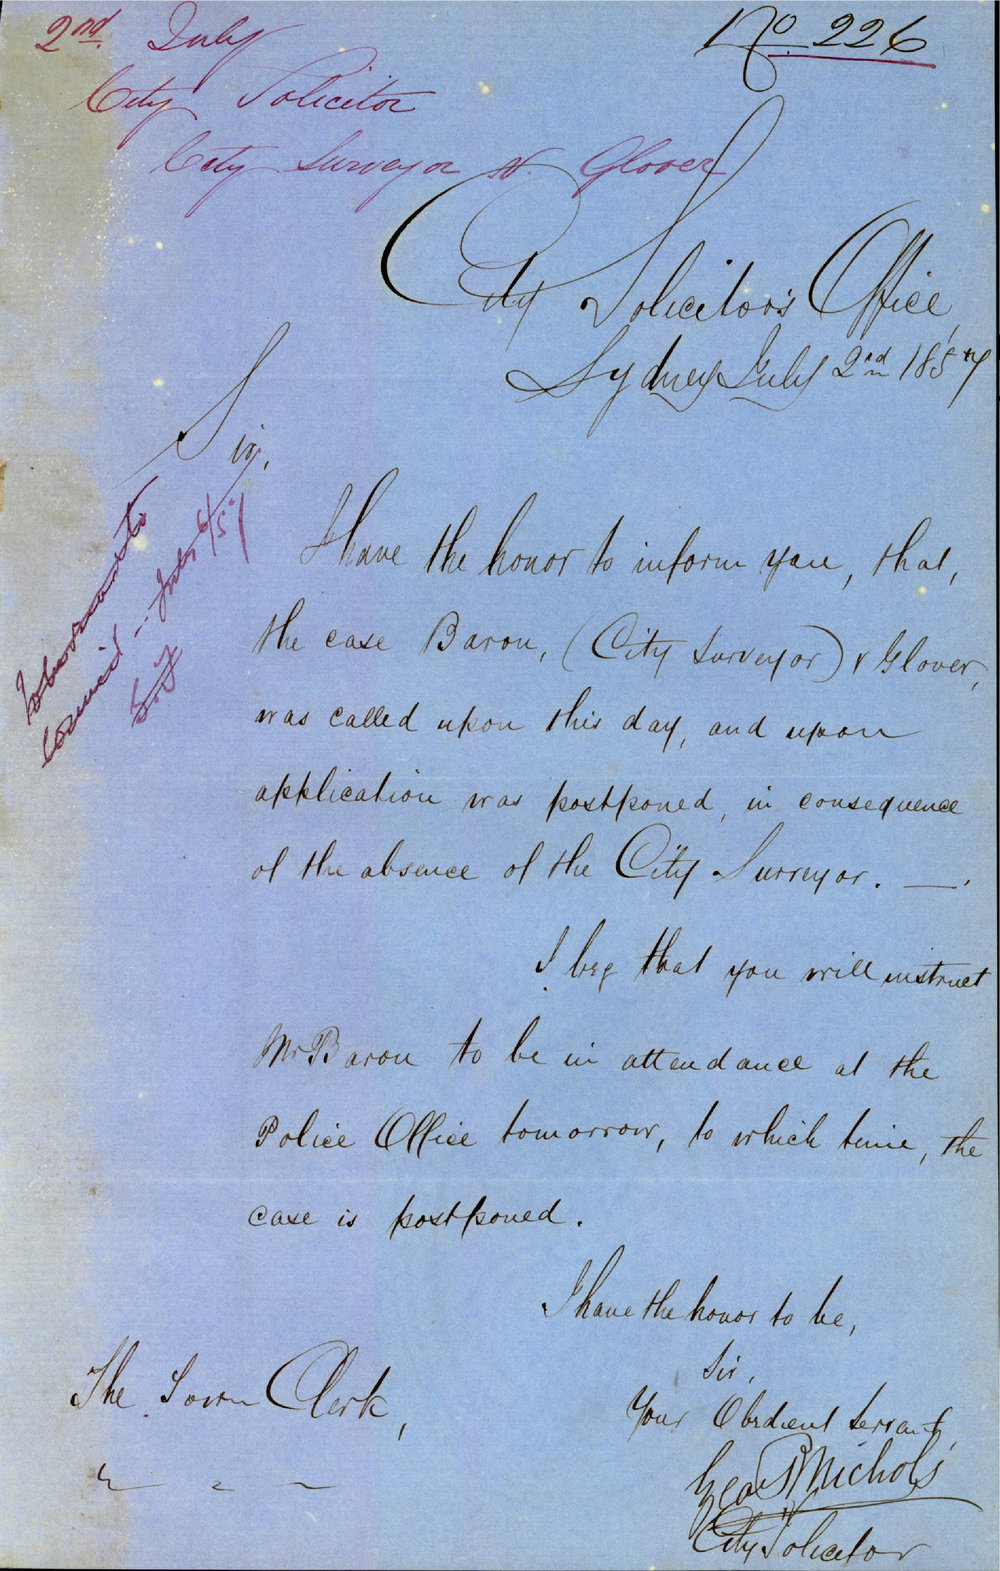 2nd. July
No. 226
City Solicitor
City Surveyor v. Glover
City Solicitor's Office,
Sydney July 2nd 1857
Sir,
to
Council - July 6/57
I have the honor to inform you, that,
the case Baron, (City Surveyor) v Glover,
was called upon this day, and upon
application was postponed, in consequence
of the absence of the City Surveyor. —.
I beg that you will instruct
Mr Baron to be in attendance at the
Police Office tomorrow, to which time, the
case is postponed.
I have the honor to be,
Sir,
Your Obedient Servant,
The Town Clerk,
Geo R Nichols
City Solicitor